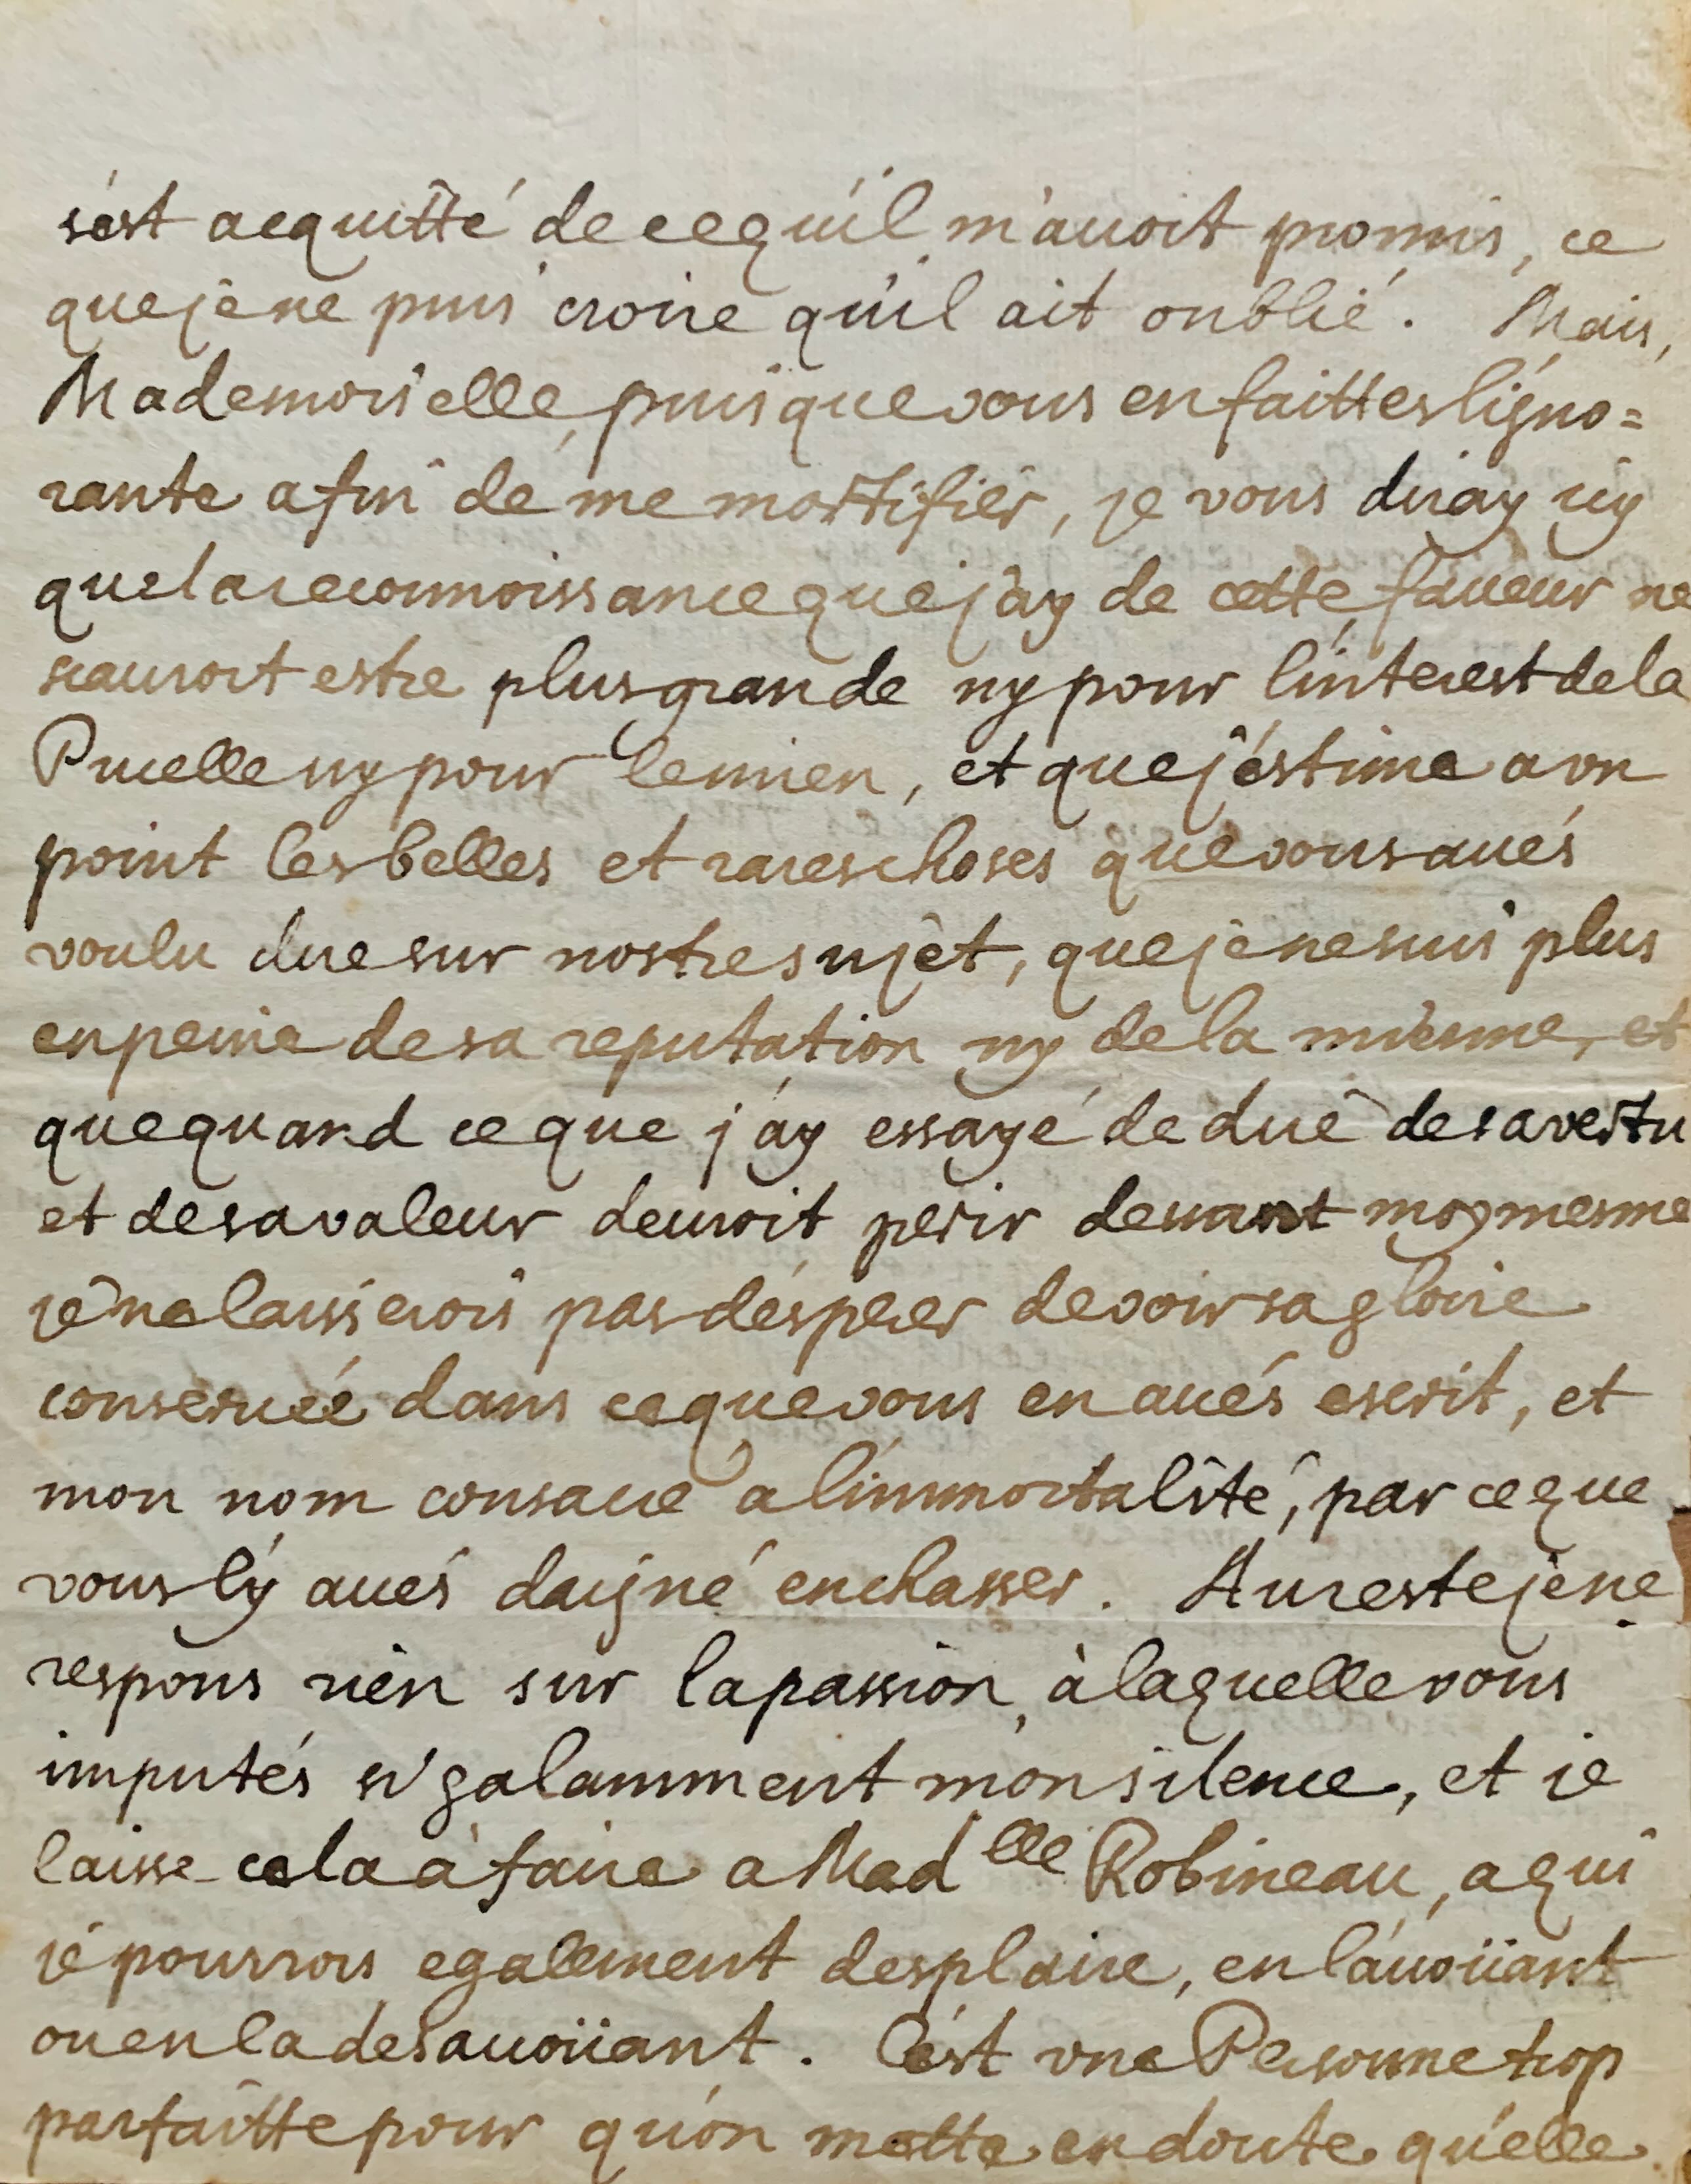 s'est acquitté de ce qu'il m'auoit promis, ce
que je ne puis croire qu'il ait oublié. Mais,
Mademoiselle, puisque vous en faittes l'igno=
rante afin de me mortifier, je vous diray icy
que la reconnoissance que j'ay de cette faueur ne
scauroit estre plus grande ny pour l'interest de la
Pucelle ny pour le mien, et que j'estime a vn
point les belles et rares choses que vous aués
voulu dire sur nostre sujet, que je ne suis plus
en peine de sa reputation ny de la mienne, et
que quand ce que j'ay essayé de dire de sa vertu
et de sa valeur deuroit perir deuant moy mesme
je ne laisserois pas d'esperer de voir sa gloire
conseruée dans ce que vous en aués escrit, et
mon nom consacré a l'immortalité, par ce que
vous l'y aués daigné enchasser. Au reste je ne
respons rien sur la passion, à laquelle vous
imputés si galamment mon silence, et je
laisse cela à faire a Mad^lle Robineau, a qui
je pourrois egalement desplaire, en l'auoüant
ou en la desauoüant. C'est vne Personne trop
parfaitte pour qu'on mette en doute qu'elle